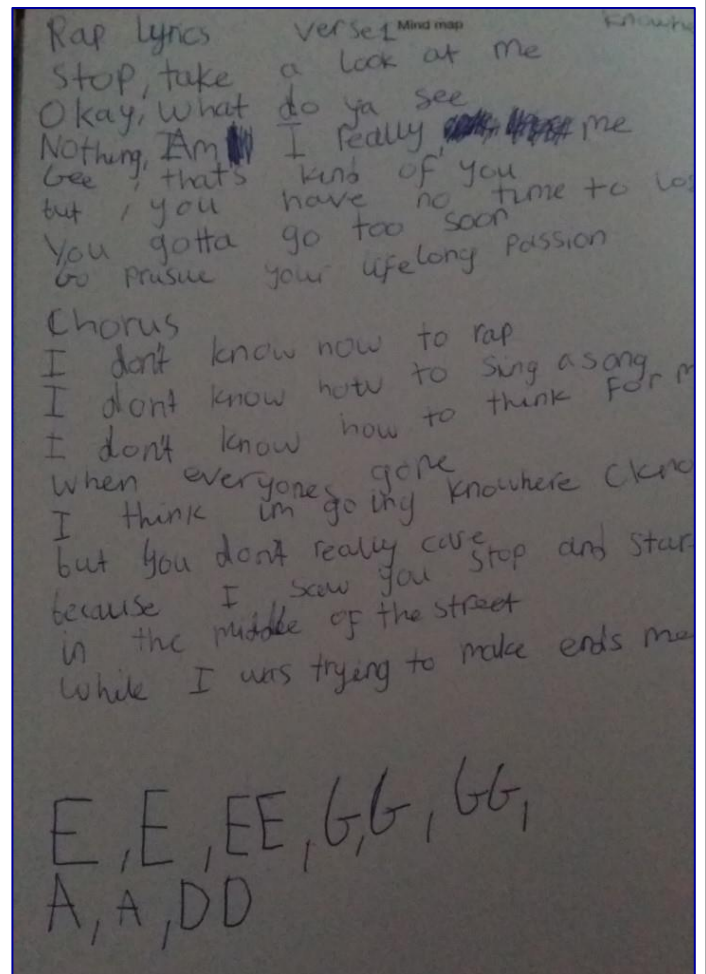 Rap Lyrics Verse1 Mind map
Stop, take a look at me
Okay, what do ya see
Nothing, Am I really me
Gee, that's kind of you
but, you have no time to
You gotta go too soon
Go prusue your lifelong passion
Chorus
I don't know how to rap
I dont know how to sing a song
I don't know how to think For
when everyones gone
I think im going knowhere
but you don't really care
because I saw you stop and
in the middle of the street
while I was trying to make ends
E, E, EE, G, G, GG,
A, A, DD